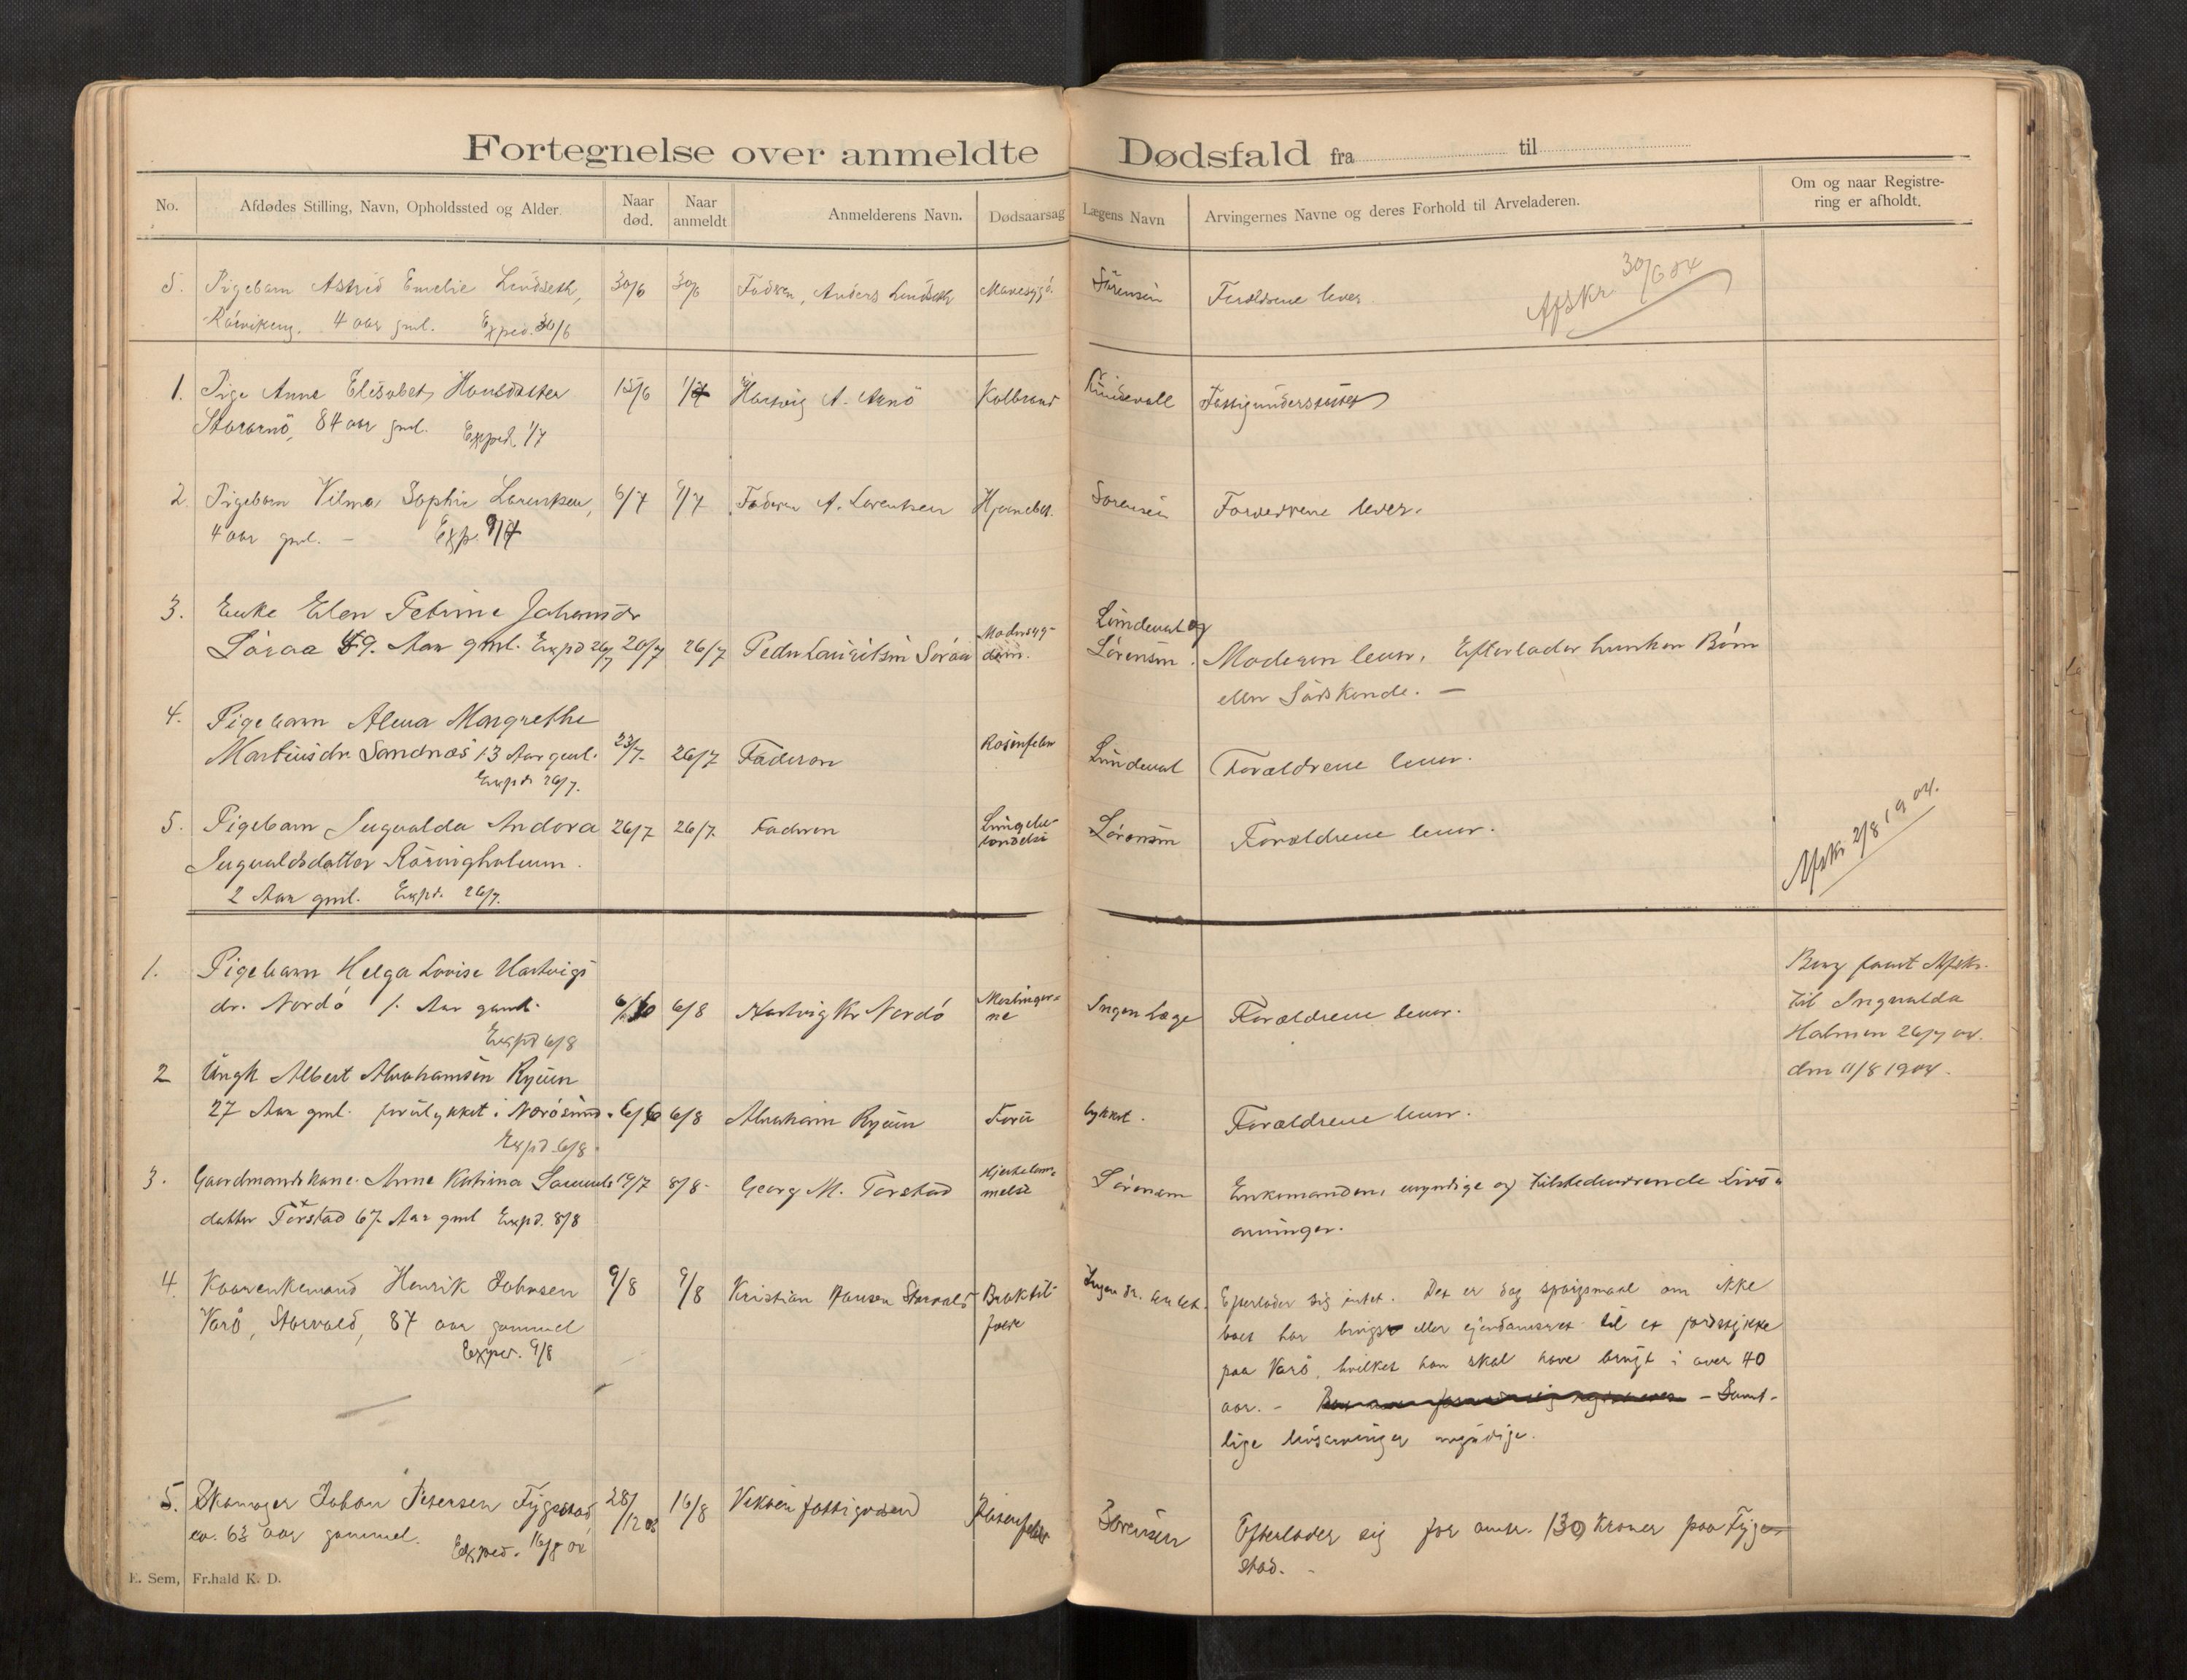 Fortegnelse over anmeldte Dødsfald fra til
No. Afdødes Stilling, Navn, Opholdssted og Alder. Naar død. Naar anmeldt Anmelderens Navn. Dødsaarsag Lægens Navn Arvingernes Navne og deres Forhold til Arveladeren. Om og naar Registrering er afholdt.
5. Pigebarn Astrid Emelie Lindseth, 30/6 30/6 Faderen, Anders Lindseth Sörensen Forældrene lever Afskr. 30/6 04
4 aar gml. Exped. 30/6
1. Pige Anna Elisabet Hansdatter 15/6 1/7 Hartvig A. Arnö Koldbrand Lindevall Fattigunderstöttet
Storarnö, 84 aar gml. Exped. 1/7
2. Pigebarn Vilma Sophie Lorentsen, 6/7 9/7 Faderen A. Lorentsen Hjernebet. Sorensen Forældrene lever.
4 aar gml. - Exp. 9/7
3. Enke Elen Petrine Johansdr
Söraa 49. Aar gml. Expd 26/7 20/7 26/7 Peder Lauritsen Söraa Lindeval og Sörensen. Moderen lever. Efterlader hverken Börn
eller Södskende. -
4. Pigebarn Alma Margrethe
Martinsdr. Sandnæs 13 Aar gml. 23/7 26/7 Faderen Rosenfeber Lindeval Forældrene lever.
Expd. 26/7.
5. Pigebarn Ingvalda Andora 26/7 26/7 Faderen Lungebetændelse Sörensen Forældrene lever. Afskr. 2/8 1904.
Ingvaldsdatter Röringholmen.
2 Aar gml. Expd. 26/7.
1. Pigebarn Helga Lovise Hartvigs
dr. Nordö 1. Aar gml. 6/8 Hartvig Kr Nordö Meslingerne Ingen Læge Forældrene lever.
Expd 6/8
Afskr.
til Ingvalda
Holmen 26/7 04.
den 11/8 1904.
2 Ungk Albert Abrahamsen Ryeen
27 Aar gml. forulykket i Nærösund. 6/8 Abraham Ryeen Foru lykket. Forældrene lever.
Expd 6/8
3. Gaardmandskone Anne Katrina Samuels 19/7 8/8 Georg M. Torstad Hjertelammelse Sörensen Enkemanden, myndige og tilstedeværende Livs
datter Torstad 67 Aar gml Expd. 8/8 arvinger.
4. Kaarenkemand Henrik Johnsen 9/8 9/8 Kristian Hansen Storvald Ingen dr. Efterlader sig intet. Det er dog spörgsmaal om ikke
Varö, Storvald, 87 aar gammel boet har brugs eller ejendomsret til et jordstykke
Exped. 9/8 paa Varö, hvilket han skal have brugt i over 40
aar. - - Samt-
lige livsarvinger myndige.
5. Skomager Johan Petersen Fygstad 28/12 03 16/8 Rosenfeber Sörensen Efterlader sig for omtr. 130 Kroner paa Fyg
ca. 63 aar gammel. Exped. 16/8 04 stad.
E. Sem, Fr.hald K. D.